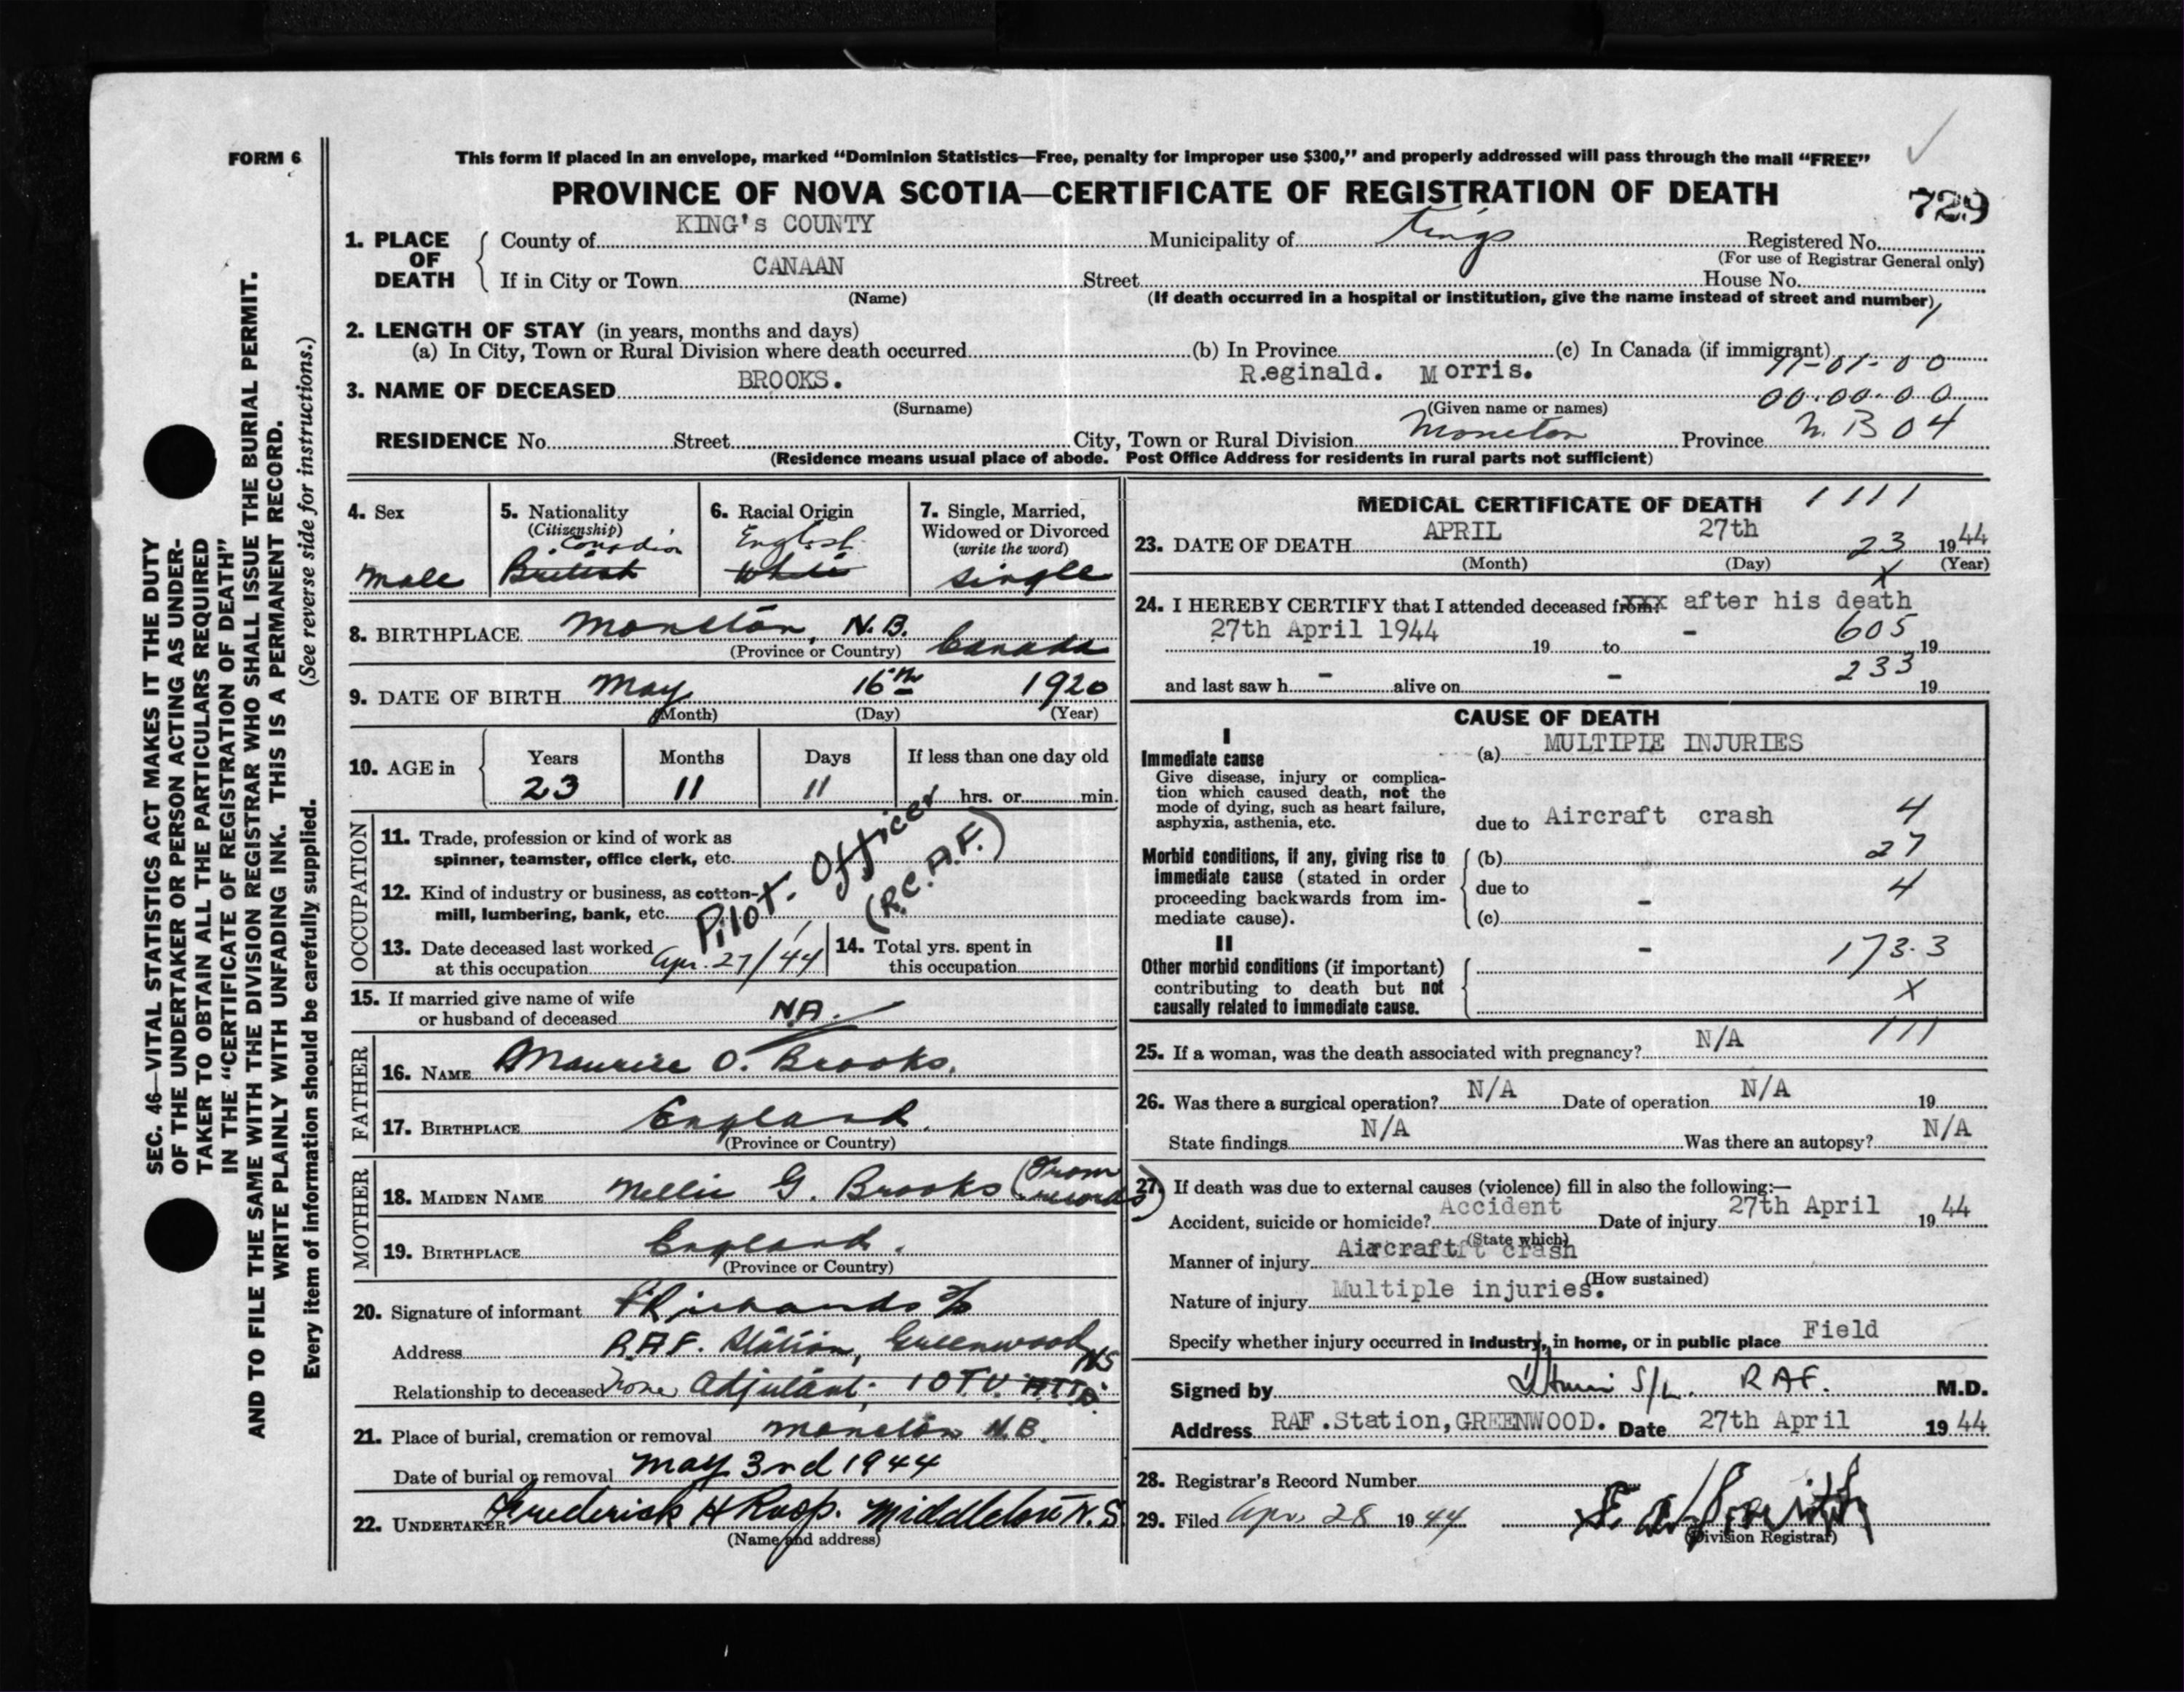 FORM 6
This form if placed in an envelope, marked "Dominion Statistics—Free, penalty for improper use $300," and properly addressed will pass through the mail "FREE"
PROVINCE OF NOVA SCOTIA—CERTIFICATE OF REGISTRATION OF DEATH
729
1. PLACE OF DEATH
County of KING's COUNTY Municipality of Kings Registered No.
(For use of Registrar General only)
If in City or Town CANAAN Street House No.
(Name) (If death occurred in a hospital or institution, give the name instead of street and number)
2. LENGTH OF STAY (in years, months and days)
(a) In City, Town or Rural Division where death occurred (b) In Province (c) In Canada (if immigrant)
3. NAME OF DECEASED BROOKS. Reginald. Morris.
(Surname) (Given name or names)
00.00.00
RESIDENCE No. Street City, Town or Rural Division Moncton Province N.B 04
(Residence means usual place of abode. Post Office Address for residents in rural parts not sufficient)
SEC. 46—VITAL STATISTICS ACT MAKES IT THE DUTY
OF THE UNDERTAKER OR PERSON ACTING AS UNDER-
TAKER TO OBTAIN ALL THE PARTICULARS REQUIRED
IN THE "CERTIFICATE OF REGISTRATION OF DEATH"
AND TO FILE THE SAME WITH THE DIVISION REGISTRAR WHO SHALL ISSUE THE BURIAL PERMIT.
WRITE PLAINLY WITH UNFADING INK. THIS IS A PERMANENT RECORD.
Every item of information should be carefully supplied. (See reverse side for instructions.)
4. Sex
Male
5. Nationality
(Citizenship)
Canadian
British
6. Racial Origin
English
White
7. Single, Married,
Widowed or Divorced
(write the word)
Single
8. BIRTHPLACE Moncton, N.B. Canada
(Province or Country)
9. DATE OF BIRTH May 16th 1920
(Month) (Day) (Year)
10. AGE in
Years Months Days If less than one day old
23 11 11 hrs. or min.
OCCUPATION
11. Trade, profession or kind of work as
spinner, teamster, office clerk, etc.
12. Kind of industry or business, as cotton-
mill, lumbering, bank, etc.
Pilot. Officer
(R.C.A.F.)
13. Date deceased last worked
at this occupation Apr. 27/44
14. Total yrs. spent in
this occupation
15. If married give name of wife
or husband of deceased N.A.
FATHER
16. NAME Maurice O. Brooks.
17. BIRTHPLACE England.
(Province or Country)
MOTHER
18. MAIDEN NAME Nellie G. Brooks (From records)
19. BIRTHPLACE England.
(Province or Country)
20. Signature of informant Richards
Address R.A.F. Station, Greenwood NS
Relationship to deceased None Adjutant. OTU.
21. Place of burial, cremation or removal Moncton N.B.
Date of burial or removal May 3rd 1944
22. UNDERTAKER Frederick H Middleton N.S.
(Name and address)
MEDICAL CERTIFICATE OF DEATH 1111
23. DATE OF DEATH APRIL 27th 23 1944
(Month) (Day) (Year)
X
24. I HEREBY CERTIFY that I attended deceased from: XXX after his death
27th April 1944 19 to - 605 19
233
and last saw h - alive on - 19
CAUSE OF DEATH
I
Immediate cause
Give disease, injury or complica-
tion which caused death, not the
mode of dying, such as heart failure,
asphyxia, asthenia, etc.
(a) MULTIPLE INJURIES
due to Aircraft crash 4
Morbid conditions, if any, giving rise to
immediate cause (stated in order
proceeding backwards from im-
mediate cause).
(b) 27
due to - 4
(c)
II
Other morbid conditions (if important)
contributing to death but not
causally related to immediate cause.
- 173.3
X
25. If a woman, was the death associated with pregnancy? N/A 111
26. Was there a surgical operation? N/A Date of operation N/A 19
State findings N/A Was there an autopsy? N/A
27. If death was due to external causes (violence) fill in also the following:—
Accident, suicide or homicide? Accident Date of injury 27th April 1944
(State which)
Manner of injury Aircraft crash
(How sustained)
Nature of injury Multiple injuries.
Specify whether injury occurred in industry, in home, or in public place Field
Signed by S/L. RAF. M.D.
Address RAF.Station,GREENWOOD. Date 27th April 1944
28. Registrar's Record Number
29. Filed Apr. 28 1944
(Division Registrar)